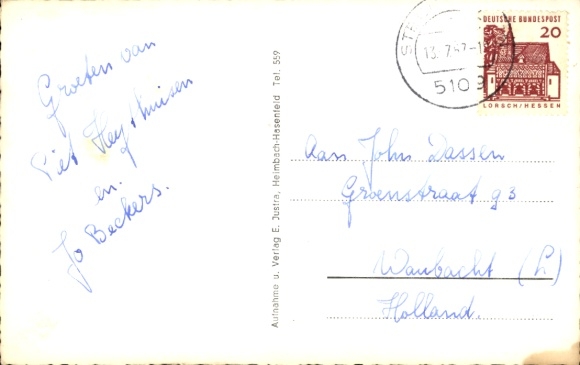 Groeten van
Piet Heythuisen
en.
Jo Beckers.
Aufnahme u. Verlag E. Justra, Heimbach-Hasenfeld Tel. 559
DEUTSCHE BUNDESPOST
20
LORSCH/HESSEN
13.7.67-1
5103
Aan John Dassen
Groenstraat 93
Waubacht (L)
Holland.